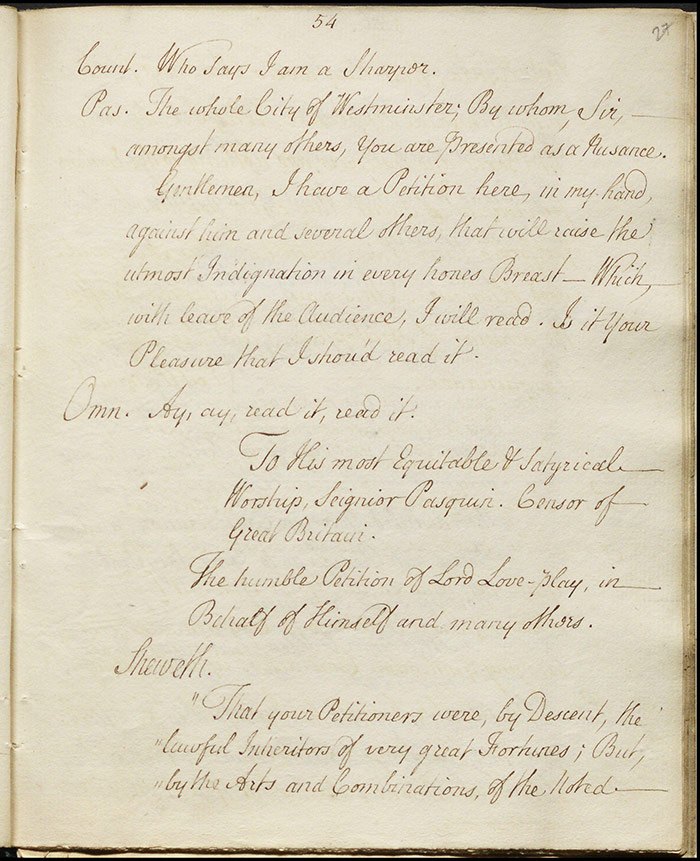 54
27
Count. Who says I am a Sharper.
Pas. The whole City of Westminster; By whom, Sir, —
amongst many others, You are Presented as a Nusance.
Gentlemen, I have a Petition here, in my hand,
against him and several others, that will raise the
utmost Indignation in every hones Breast — Which,
with leave of the Audience, I will read. Is it Your
Pleasure that I shou'd read it.
Omn. Ay, ay, read it, read it.
To His most Equitable & Satyrical —
Worship, Seignior Pasquin. Censor of —
Great Britain.
The humble Petition of Lord Love-play, in
Behalf of Himself and many others.
Sheweth.
"That your Petitioners were, by Descent, the
"lawful Inheritors of very great Fortunes; But,
"by the Arts and Combinations, of the Noted —